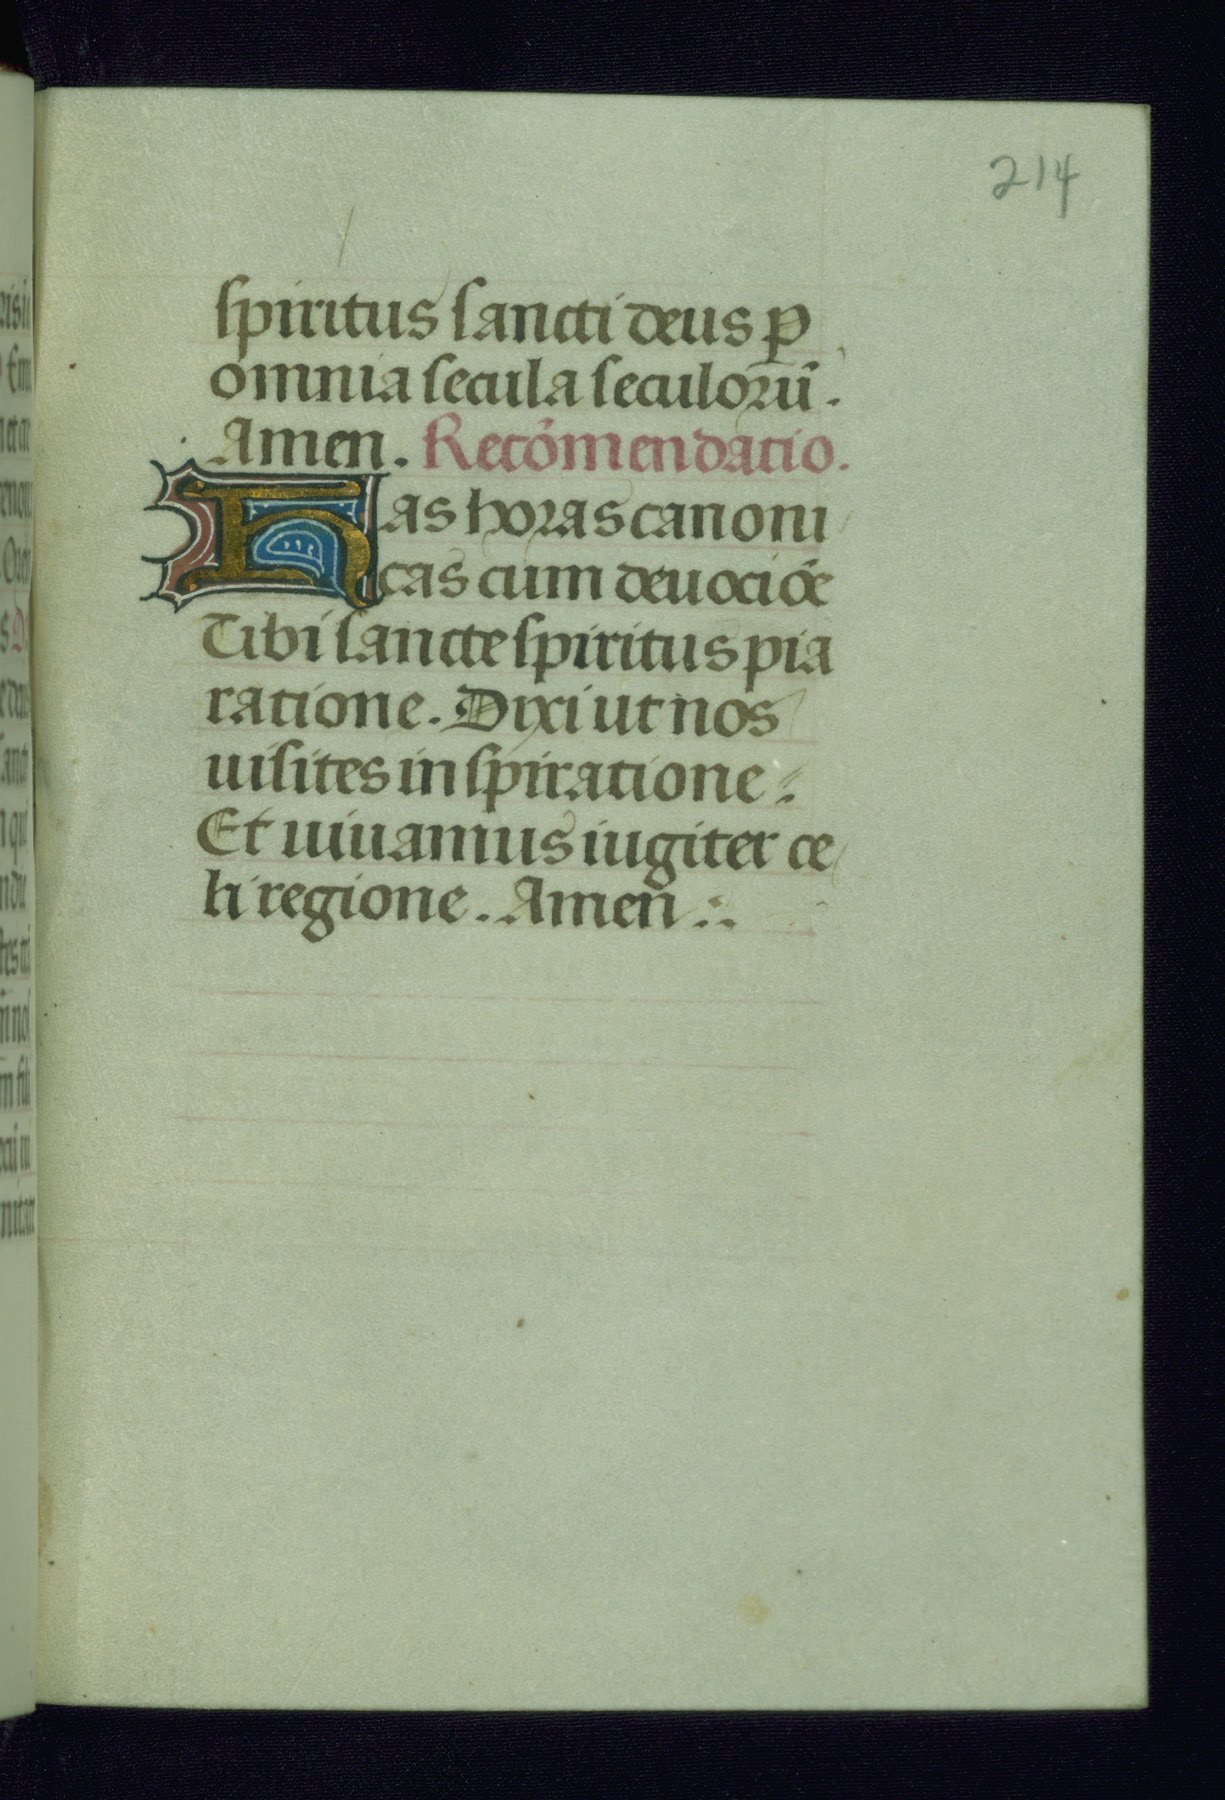 214
spiritus sancti deus p̱
omnia secula seculorū.
Amen. Recōmendatio.
Has horas canoni
cas cum deuociōe
Tibi sancte spiritus pia
ratione. Dixi ut nos
uisites inspiratione.
Et uiuamus iugiter ce
li regione. Amen̄